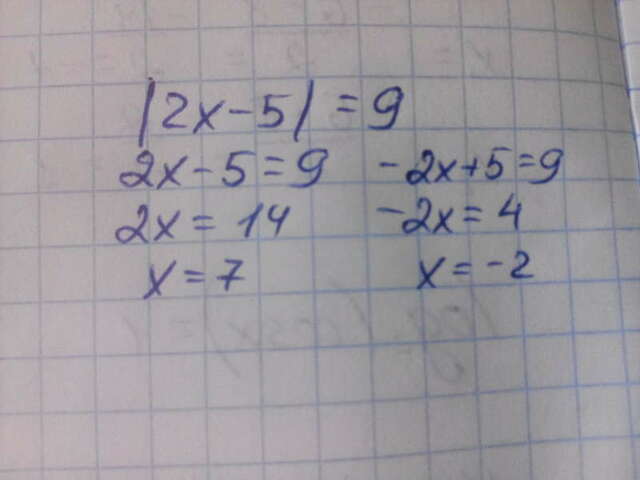 |2x-5| = 9
2x-5=9 -2x+5=9
2x = 14 -2x=4
x=7 x=-2